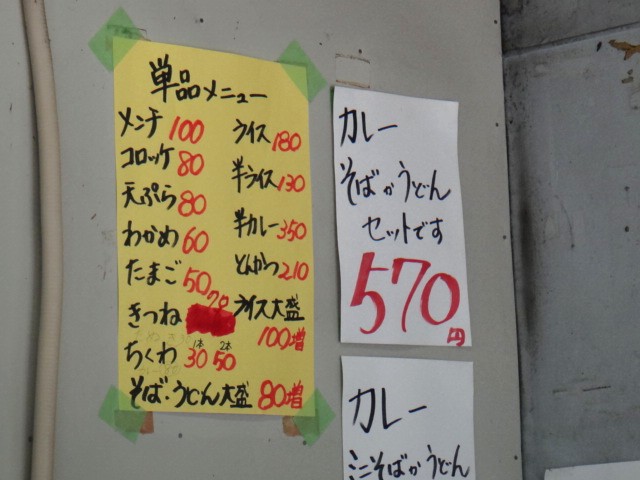 単品メニュー
メンチ 100
コロッケ 80
天ぷら 80
わかめ 60
たまご 50
きつね 70
ちくわ 1本 30 2本 50
ライス 180
半ライス 130
半カレー 350
とんかつ 210
ライス大盛
100増
そば・うどん大盛 80増
カレー
そばかうどん
セットです
570円
カレー
ミニそばかうどん